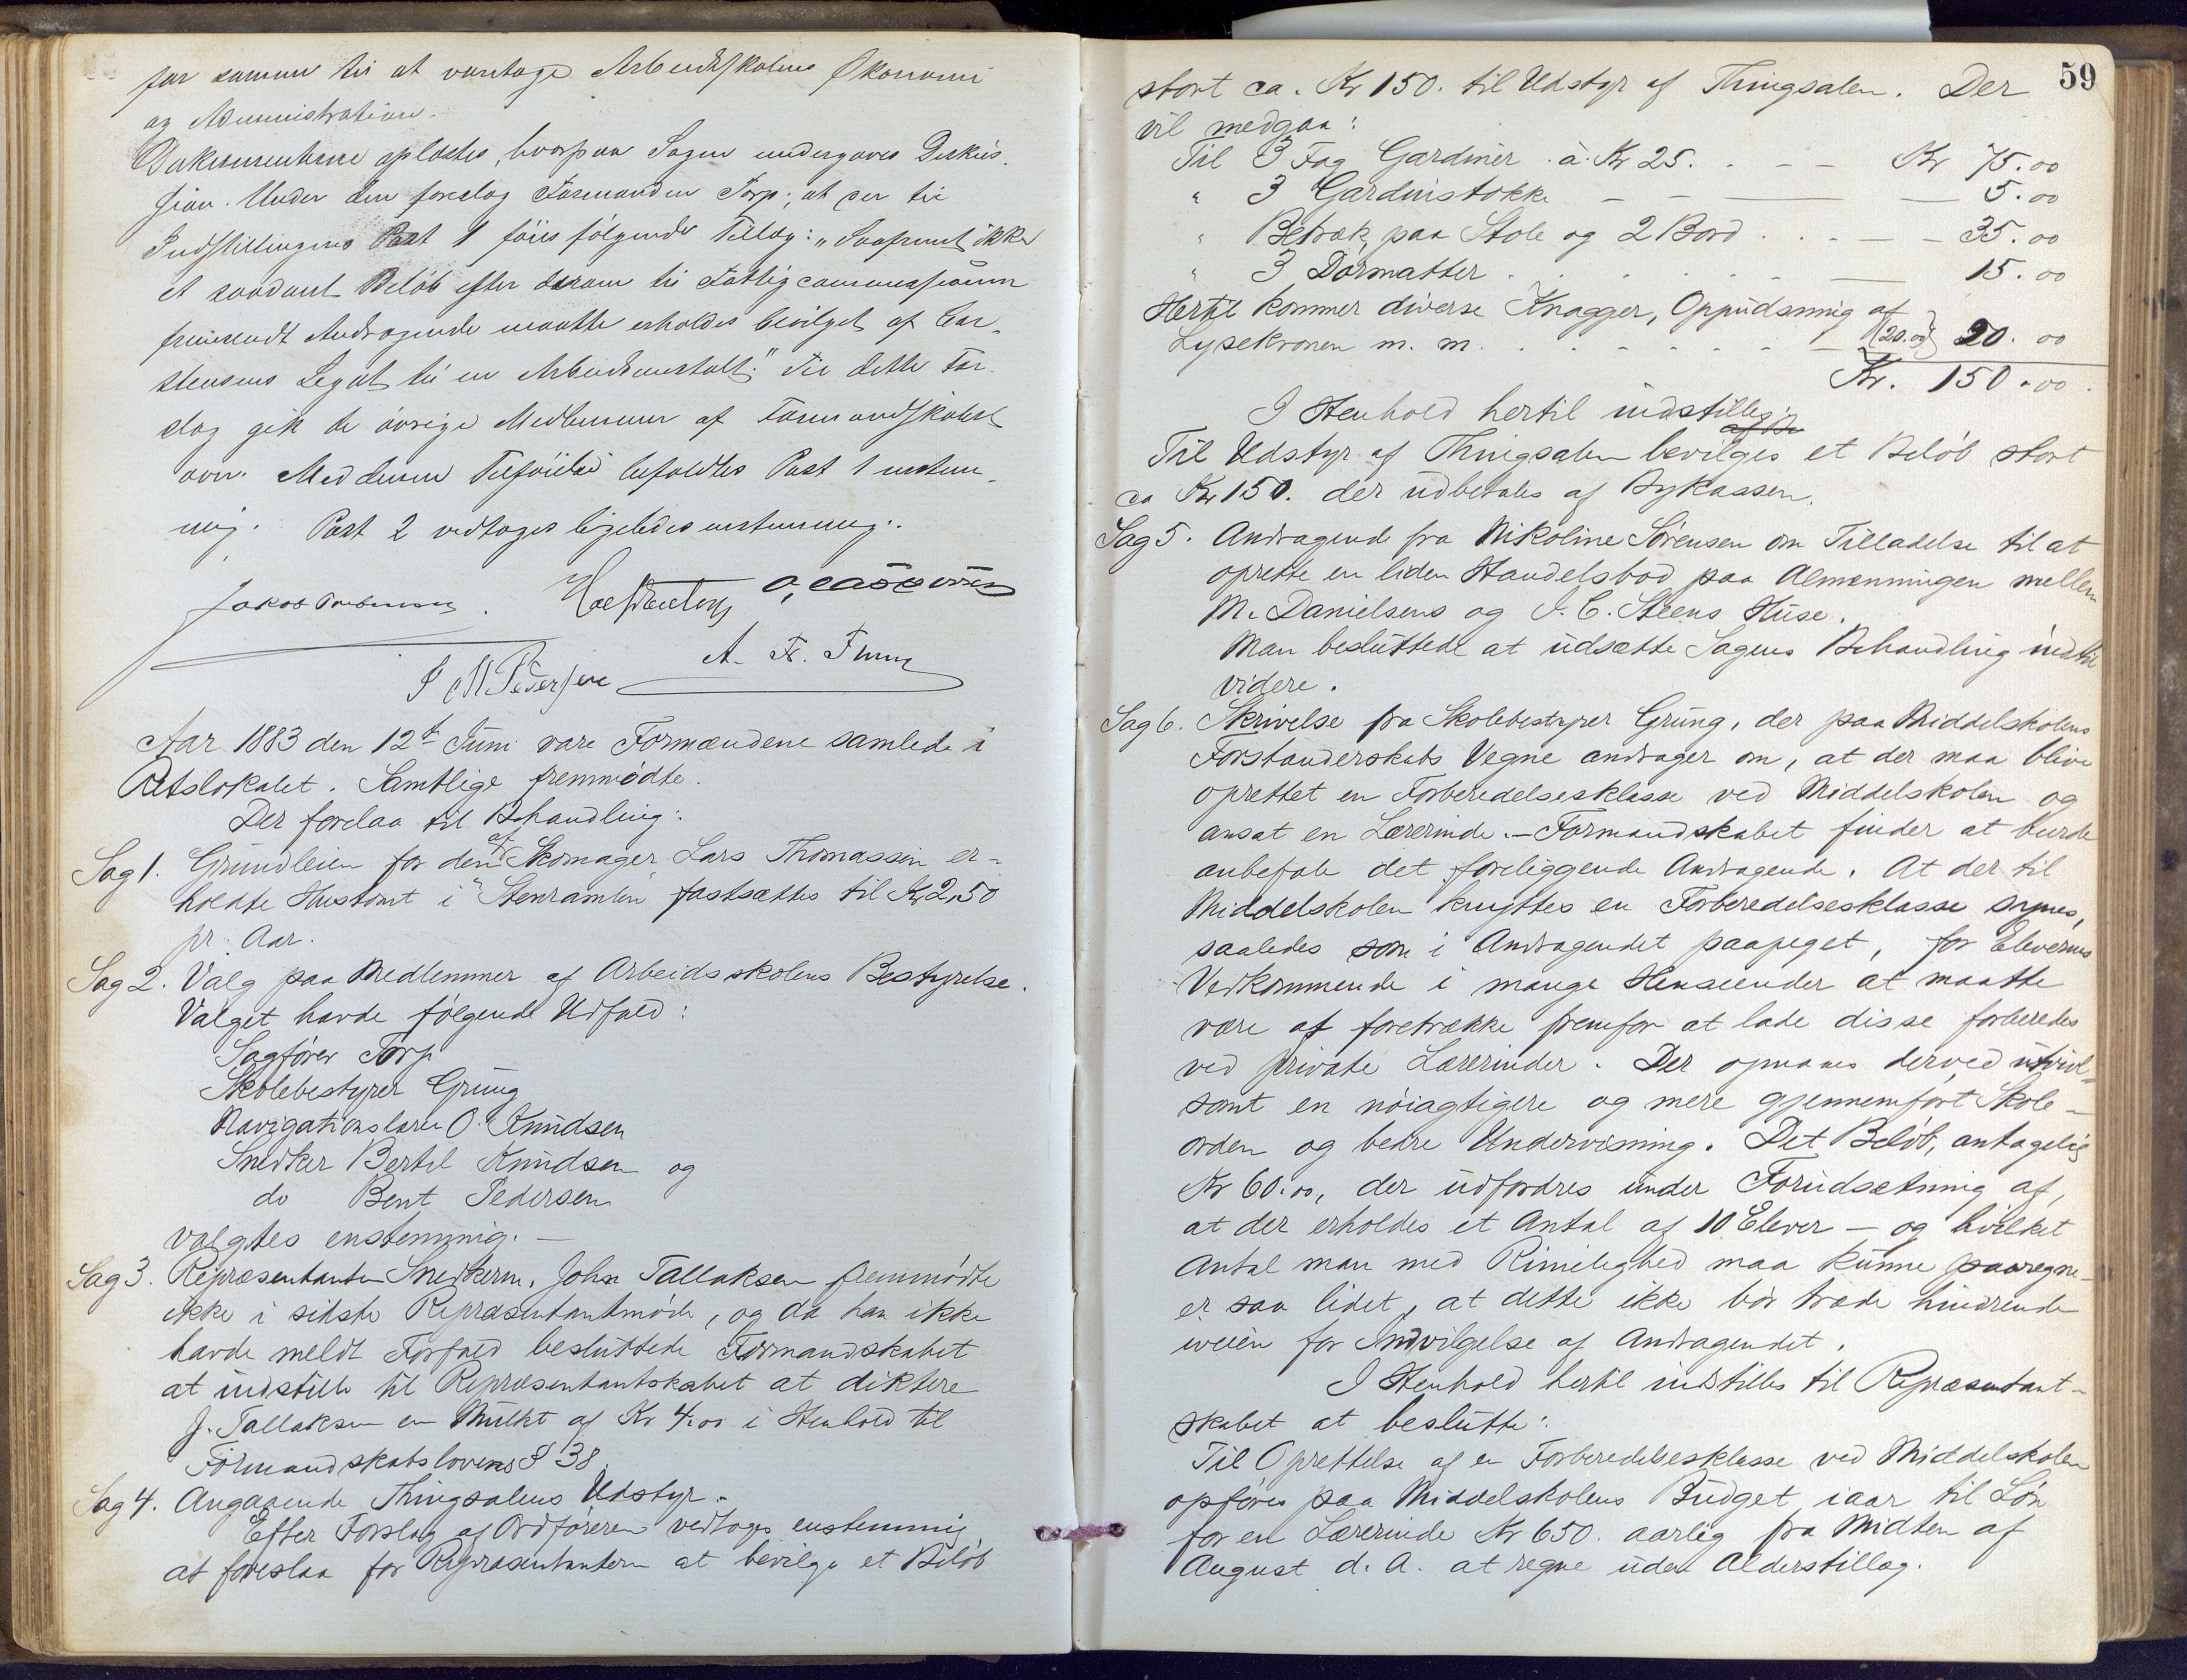 for samme til at varetage Arbeidsskolens Økonomi
og Administration.
Dokumenterne oplæstes, hvorpaa Sagen undergaves Diskus-
sion. Under den foreslog Formanden Torp, at der til
Indstillingens Post 1 föies følgende Tillæg: "Saafremt ikke
et saadant Beløb efter derom til Fattigcommissionen
fremsendt Andragende maatte erholdes bevilget af Car-
stensens Legat til en Arbeidsanstalt." Til dette For-
slag gik de øvrige Medlemmer af Formandskabet
over. Med denne Tilföielse befoldtes Post 1 enstem-
mig. Post 2 vedtoges ligeledes enstemmig.
Jakob
A. Fr.
I M Pedersen
Aar 1883 den 12te Juni vare Formændene samlede i
Retslokalet. Samtlige fremmødte.
Der forelaa til Behandling:
Sag 1. Grundleien for den af Skomager Lars Thomassen er-
holdte Hustomt i "Stenramlen" fastsættes til Kr 2,50
pr. Aar.
Sag 2. Valg paa Medlemmer af Arbeidsskolens Bestyrelse.
Valget havde følgende Udfald:
Sagfører Torp
Skolebestyrer Grung
Navigationslærer O. Knudsen
Snedker Bertel Knudsen og
do Bent Pedersen
valgtes enstemmig. —
Sag 3. Repræsentanten Snedkerm. John Tallaksen fremmødte
ikke i sidste Repræsentantmøde, og da han ikke
havde meldt Forfald besluttede Formandskabet
at indstille til Repræsentantskabet at diktere
J. Tallaksen en Mulkt af Kr 4.00 i Henhold til
Formandskabslovens § 38.
Sag 4. Angaaende Thingsalens Udstyr.
Efter Forslag af Ordføreren vedtoges enstemmig
at foreslaa for Repræsentanterne at bevilge et Beløb
59
stort ca. Kr 150. til Udstyr af Thingsalen. Der
vil medgaa:
Til 3 Fag Gardiner à Kr 25. . - - Kr 75.00
" 3 Gardinstokke - - — — 5.00
" Betræk paa Stole og 2 Bord . . . - — - 35.00
" 3 Dørmatter . . . . . . - — 15.00
Hertil kommer diverse Knagger, Oppudsning af
Lysekronen m. m. . . . . . . . - (20.00) 20.00
Kr. 150.00.
I Henhold hertil indstilles:
Til Udstyr af Thingsalen bevilges et Beløb stort
ca Kr 150. der udbetales af Bykassen.
Sag 5. Andragende fra Nikoline Sørensen om Tilladelse til at
oprette en liden Handelsbod paa Almenningen mellem
M. Danielsens og J. C. Steens Huse.
Man besluttede at udsætte Sagens Behandling indtil
videre.
Sag 6. Skrivelse fra Skolebestyrer Grung, der paa Middelskolens
Forstanderskabs Vegne andrager om, at der maa blive
oprettet en Forberedelsesklasse ved Middelskolen og
ansat en Lærerinde. — Formandskabet finder at burde
anbefale det foreliggende Andragende. At der til
Middelskolen knyttes en Forberedelsesklasse synes,
saaledes som i Andragendet paapeget, for Elevernes
Vedkommende i mange Henseender at maatte
være at foretrække fremfor at lade disse forberedes
ved private Lærerinder. Der opnaaes derved utvivl-
somt en nøiagtigere og mere gjennemført Skole-
orden og bedre Undervisning. Det Beløb, antagelig
Kr 60.00, der udfordres under Forudsætning af,
at der erholdes et Antal af 10 Elever — og hvilket
Antal man med Rimelighed maa kunne paaregne —
er saa lidet, at dette ikke bør træde hindrende
iveien for Indvilgelse af Andragendet.
I Henhold hertil indstilles til Repræsentant-
skabet at beslutte:
Til Oprettelse af en Forberedelsesklasse ved Middelskolen
opføres paa Middelskolens Budget iaar til Løn
for en Lærerinde Kr 650. aarlig fra Midten af
August d. A. at regne uden Alderstillæg.